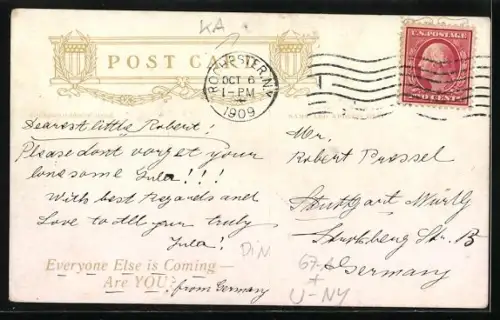 KA
POST CA
ROCHESTER, N.Y.
OCT 6
1-PM
1909
U.S. POSTAGE
Dearest little Robert!
Please dont vorget your
lonesome Jula!!!
With best Regards and
Love to All your truly
Jula!
from Germany
Everyone Else is Coming
Are YOU?
Mr.
Robert Pressel
Stuttgart
Str. B
Germany
DiN
U-NY